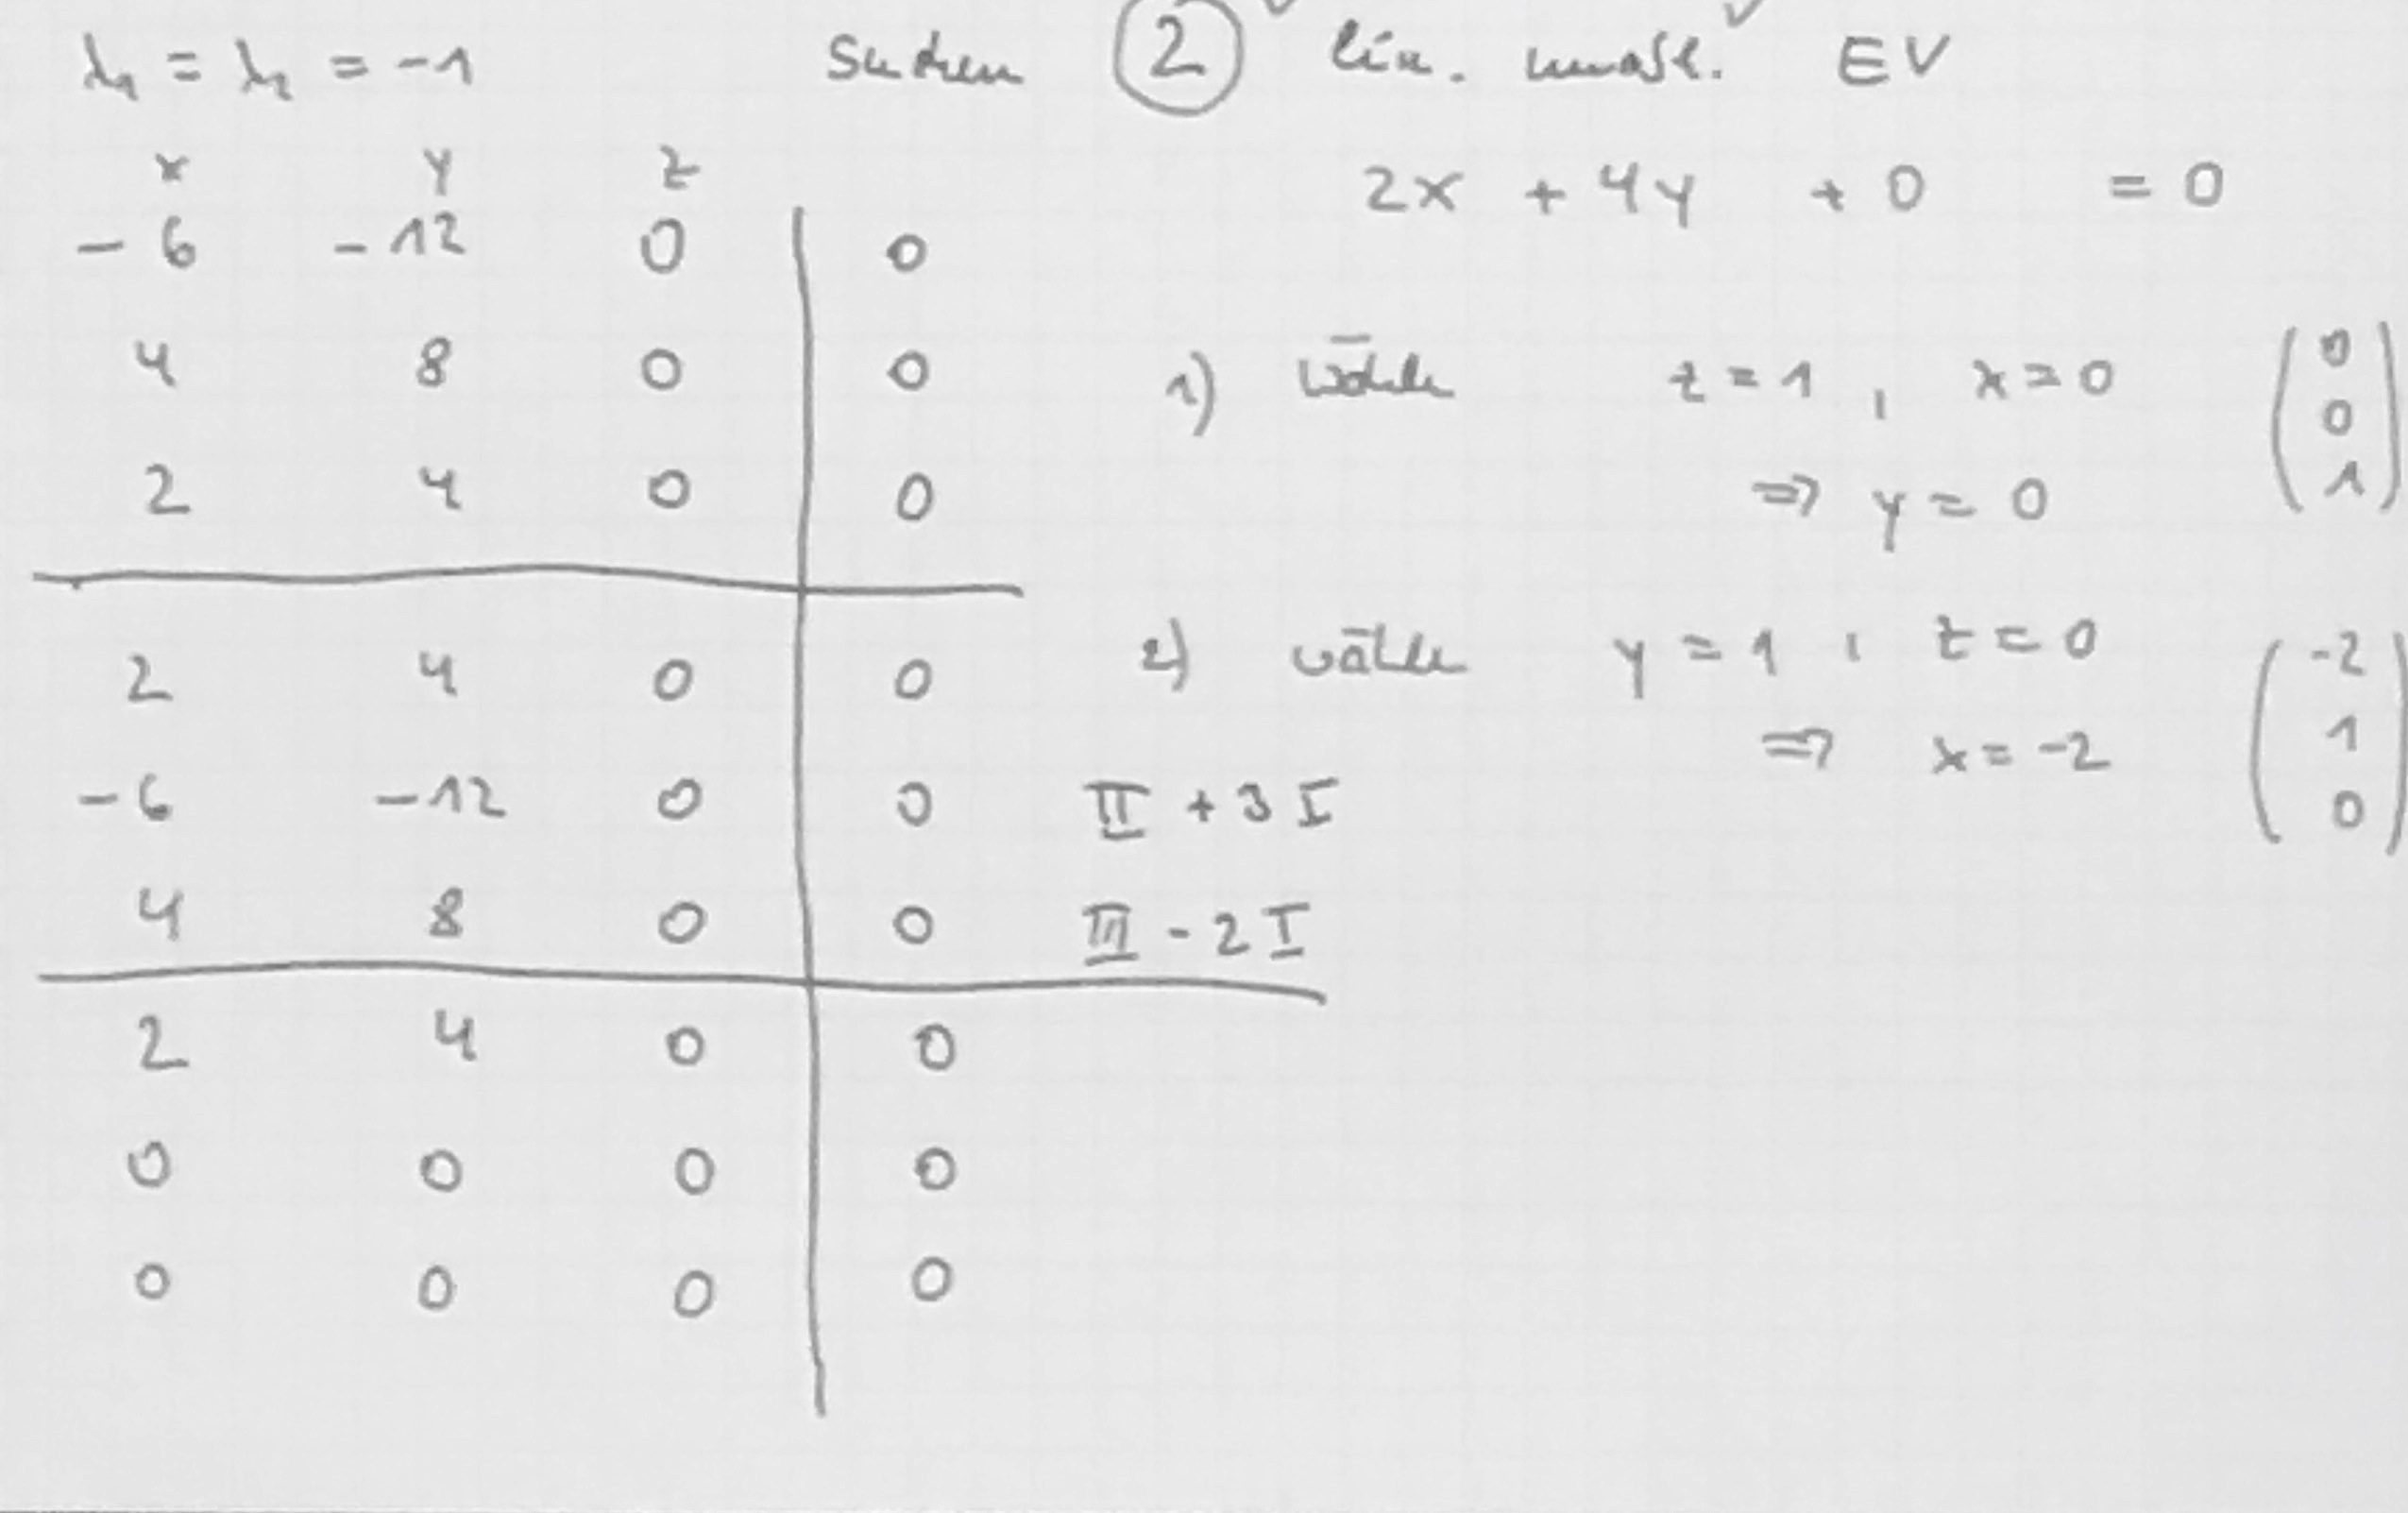 λ₁ = λ₂ = -1
Suchen 2 lin. unabh. EV
x y z
-6 -12 0 | 0
4 8 0 | 0
2 4 0 | 0
2 4 0 | 0
-6 -12 0 | 0 II + 3 I
4 8 0 | 0 III - 2 I
2 4 0 | 0
0 0 0 | 0
0 0 0 | 0
2x + 4y + 0 = 0
1) wähle z = 1 , x = 0
⇒ y = 0
(0
0
1)
2) wähle y = 1 , z = 0
⇒ x = -2
(-2
1
0)